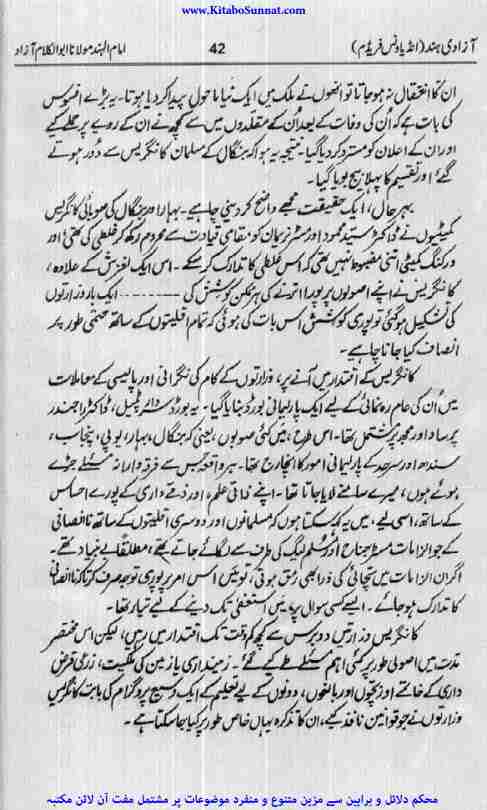 www.KitaboSunnat.com
آزادیِ ہند (انڈیا ونس فریڈم) 42 امام الہند مولانا ابوالکلام آزاد
ان کا انتقال نہ ہو جاتا تو انھوں نے ملک میں ایک نیا ماحول پیدا کر دیا ہوتا۔ یہ بڑے افسوس
کی بات ہے کہ اُن کی وفات کے بعد اُن کے مقلدوں میں سے کچھ نے ان کے رویے پر حملے کیے
اور ان کے اعلان کو مسترد کر دیا گیا۔ نتیجہ یہ ہوا کہ بنگال کے مسلمان کانگریس سے دُور ہوتے
گئے اور تقسیم کا پہلا بیج بویا گیا۔
بہر حال، ایک حقیقت مجھے واضح کر دینی چاہیے۔ بہار اور بنگال کی صوبائی کانگریس
کمیٹیوں نے ڈاکٹر سید محمود اور مسٹر نریمان کو مقامی قیادت سے محروم رکھ کر غلطی کی تھی؛ اور
ورکنگ کمیٹی اتنی مضبوط نہیں تھی کہ اس غلطی کا تدارک کر سکے۔ اس ایک لغزش کے علاوہ،
کانگریس نے اپنے اصولوں پر پورا اترنے کی ہر ممکن کوشش کی ـــــــــ ایک بار وزارتوں
کی تشکیل ہو گئی تو پوری کوشش اس بات کی ہوئی کہ تمام اقلیتوں کے ساتھ حتمی طور پر
انصاف کیا جانا چاہیے۔
کانگریس کے اقتدار میں آنے پر، وزارتوں کے کام کی نگرانی اور پالیسی کے معاملات
میں اُن کی عام رہنمائی کے لیے ایک پارلیمانی بورڈ بنایا گیا۔ یہ بورڈ سردار پٹیل، ڈاکٹر راجندر
پرساد اور مجھ پر مشتمل تھا۔ اس طرح، میں کئی صوبوں، یعنی کہ بنگال، بہار، یوپی، پنجاب،
سندھ اور سرحد کے پارلیمانی امور کا انچارج تھا۔ ہر واقعہ جس سے فرقہ وارانہ مسئلے جڑے
ہوئے ہوں، میرے سامنے لایا جاتا تھا۔ اپنے ذاتی علم، اور ذمے داری کے پورے احساس
کے ساتھ، اسی لیے، میں یہ کہہ سکتا ہوں کہ مسلمانوں اور دوسری اقلیتوں کے ساتھ ناانصافی
کے جو الزامات مسٹر جناح اور مسلم لیگ کی طرف سے لگائے جاتے تھے، مطلقاً بے بنیاد تھے۔
اگر ان الزامات میں سچائی کی ذرا بھی رمق ہوتی، تو میں اس امر پر پوری توجہ صرف کرتا کہ ناانصافی
کا تدارک ہو جائے۔ ایسے کسی سوال پر، میں استعفیٰ تک دینے کے لیے تیار تھا۔
کانگریس وزارتیں دو برس سے کچھ کم وقت تک اقتدار میں رہیں، لیکن اس مختصر
مدت میں اصولی طور پر کئی اہم مسئلے طے کیے گئے۔ زمینداری یا زمین کی ملکیت، زرعی قرض
داری کے خاتمے اور بچوں اور بالغوں، دونوں کے لیے تعلیم کے ایک وسیع پروگرام کی بابت کانگریس
وزارتوں نے جو قوانین نافذ کیے، ان کا تذکرہ یہاں خاص طور پر کیا جا سکتا ہے۔
محکم دلائل و براہین سے مزین متنوع و منفرد موضوعات پر مشتمل مفت آن لائن مکتبہ